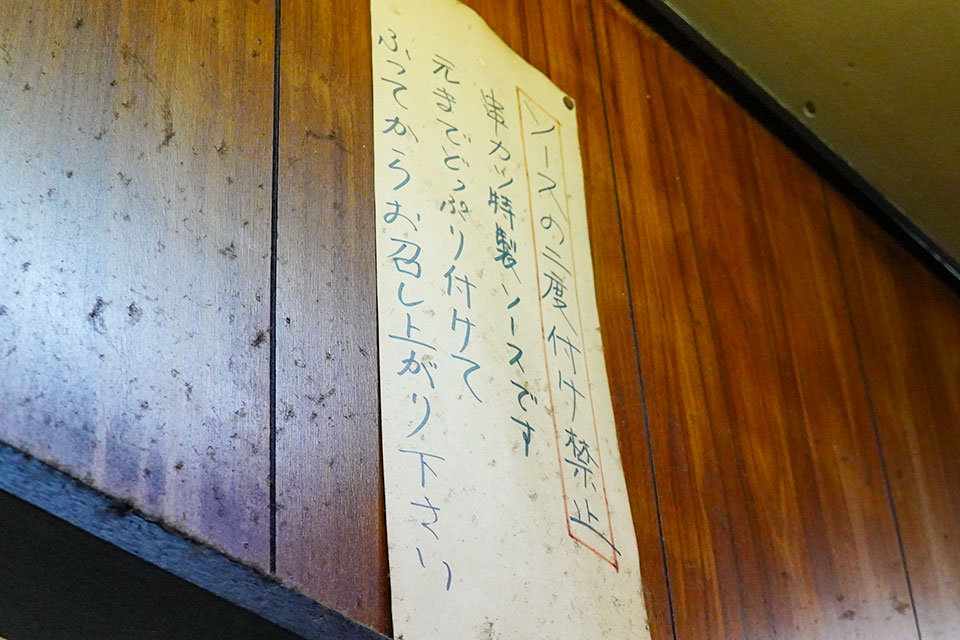 ソースの二度付け禁止
串カツ特製ソースです
元までどっぷり付けて
ふってからお召し上がり下さい